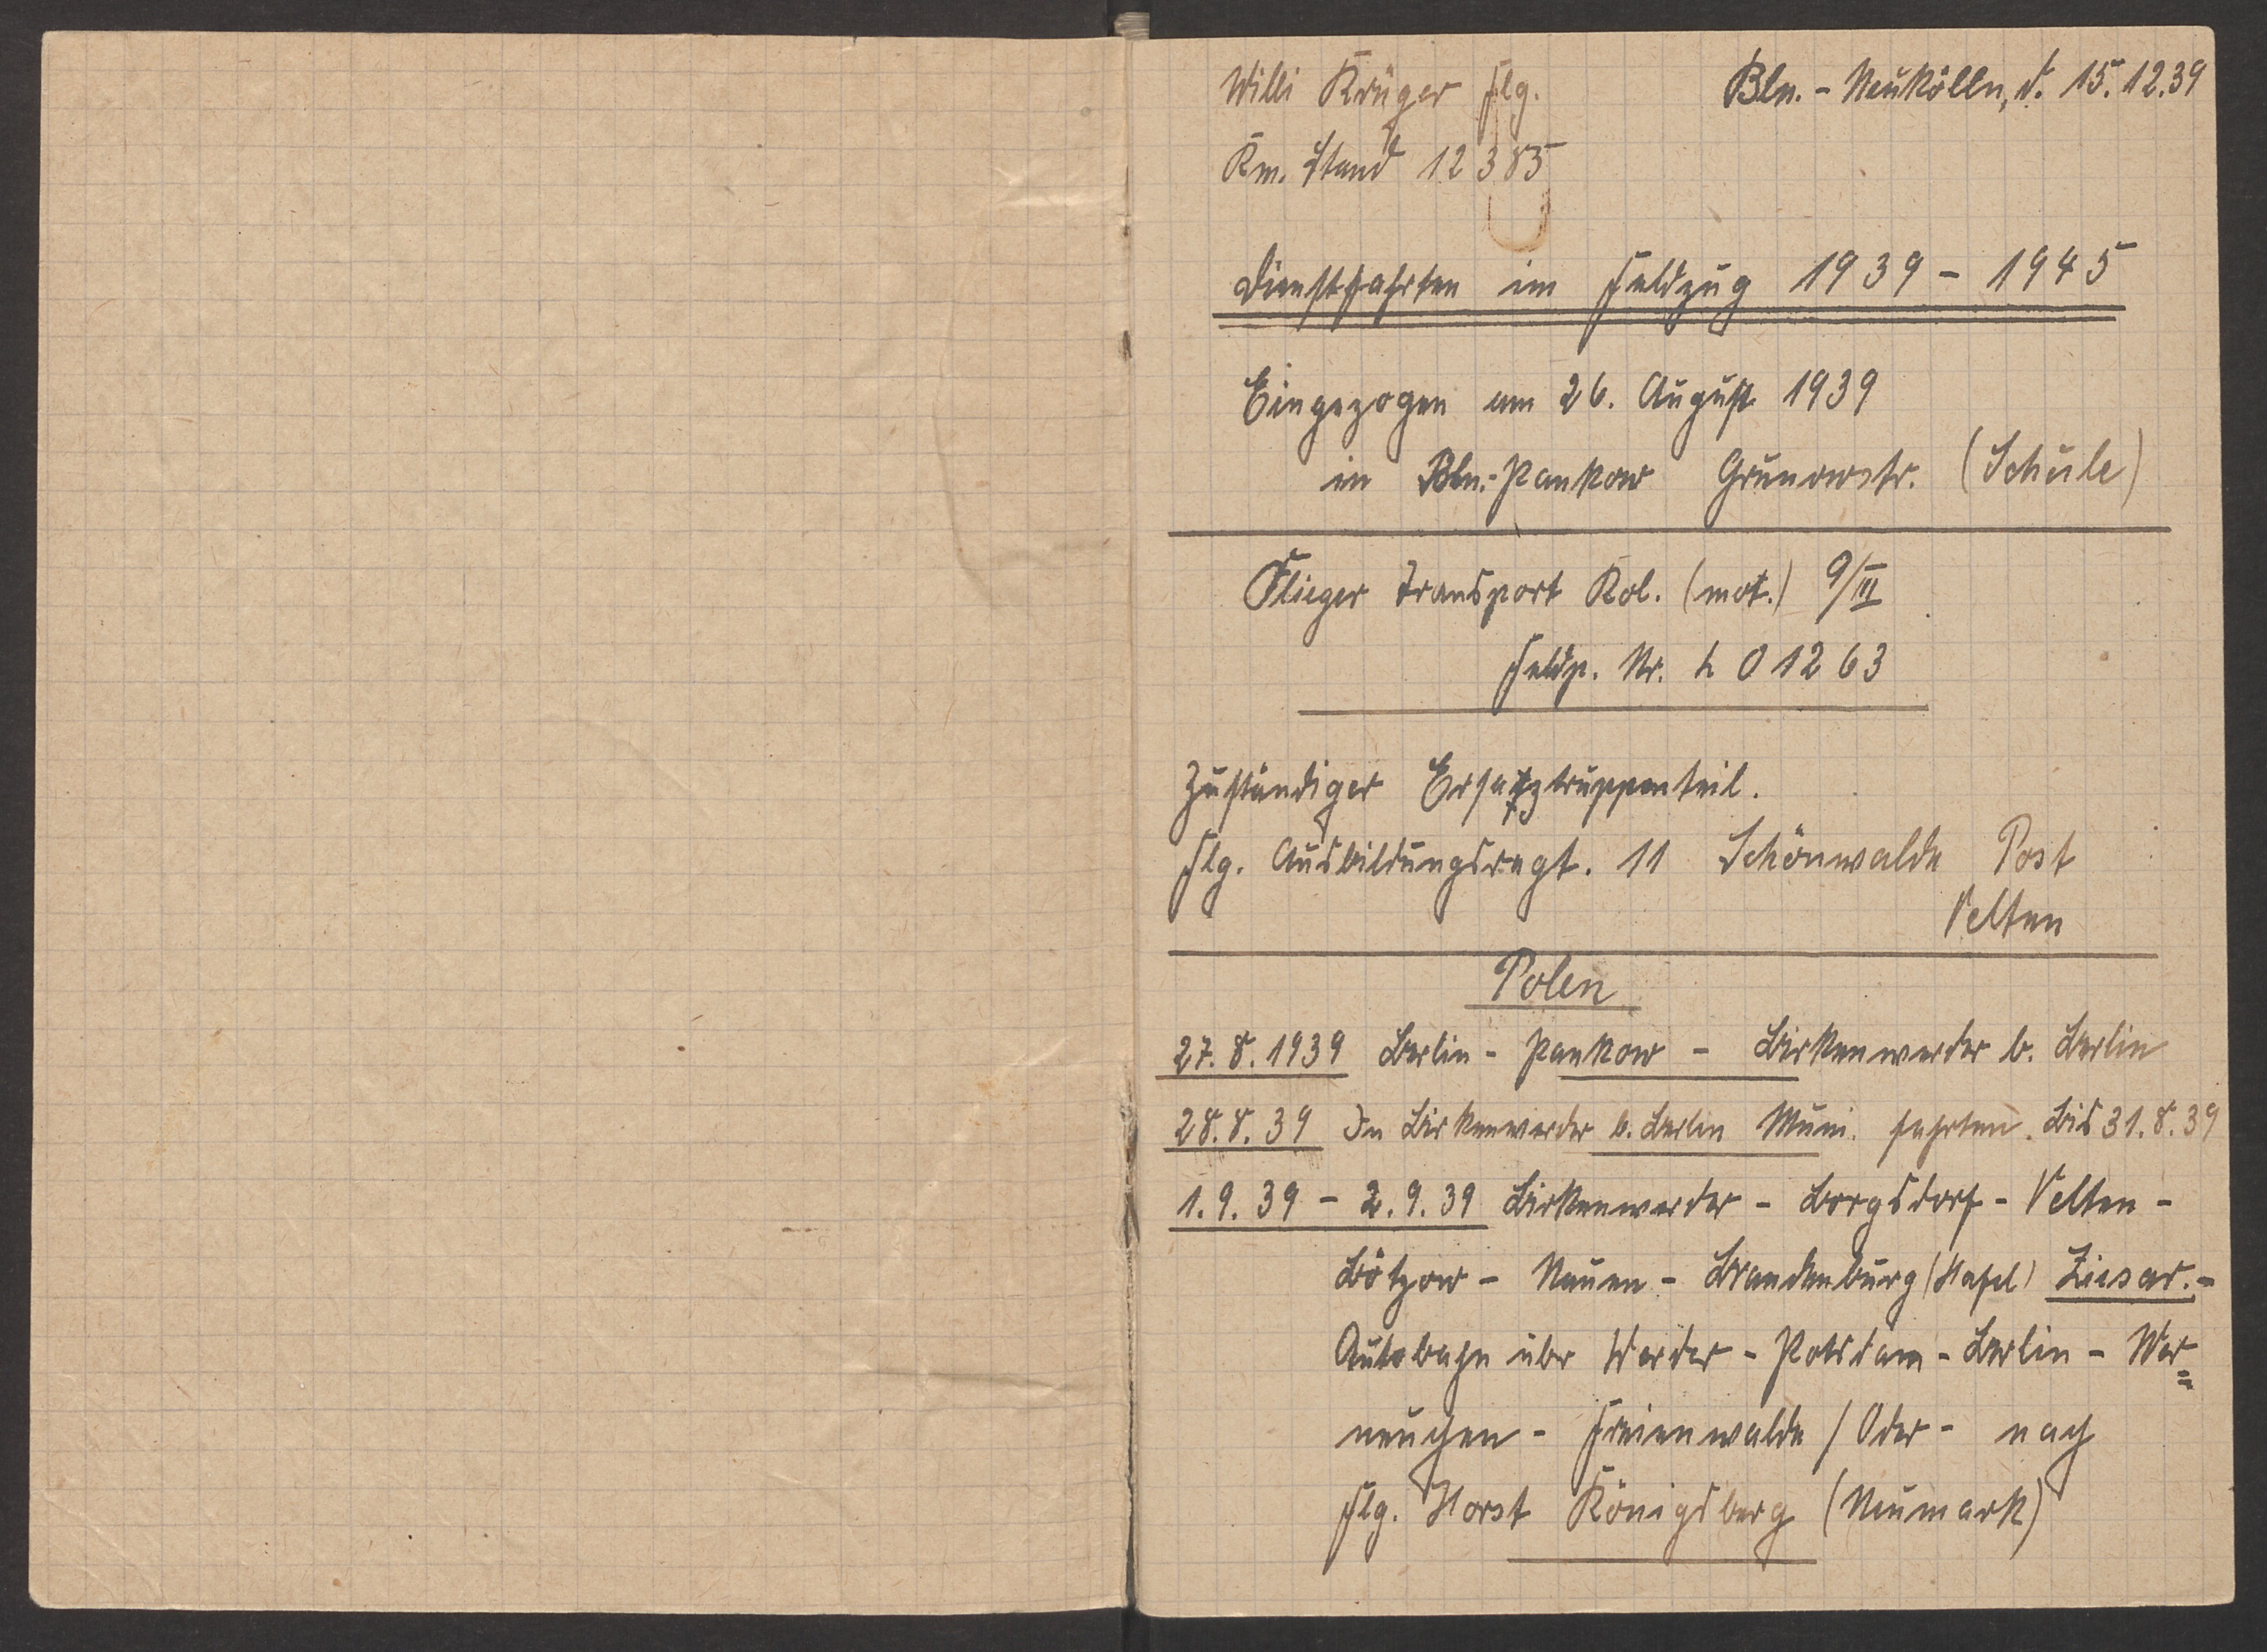 Willi Krüger Flg. Bln. - Neukölln, d. 15.12.39
Km. Stand 12385
Dienstfahrten im Feldzug 1939 - 1945
Eingezogen am 26. August 1939
in Bln.-Pankow Grunowstr. (Schule)
Flieger Transport Kol. (mot.) 9/III
Feldp. Nr. L 01263
Zuständiger Ersatztruppenteil.
Flg. Ausbildungsregt. 11 Schönwalde Post
Velten
Polen
27.8.1939 Berlin - Pankow - Birkenwerder b. Berlin
28.8.39 In Birkenwerder b. Berlin Muni. fahrten. Bis 31.8.39
1.9.39 - 2.9.39 Birkenwerder - Borgsdorf - Velten -
Bötzow - Nauen - Brandenburg (Hafel) Ziesar. -
Autobahn über Werder - Potsdam - Berlin - Wer=
neuchen - Freienwalde / Oder - nach
Flg. Horst Königsberg (Neumark)